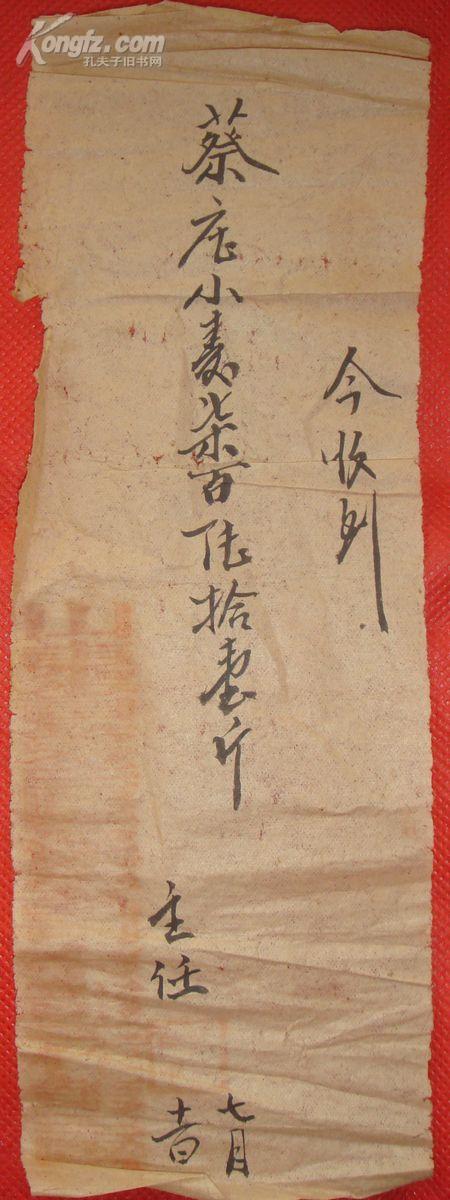 Kongfz.com
孔夫子旧书网
今收到
蔡庄小麦柒百陆拾壹斤
主任
七月
十一日